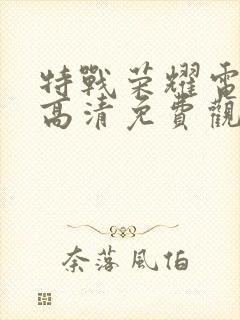 特戰荣耀電
高清免費觀
奈落風伯